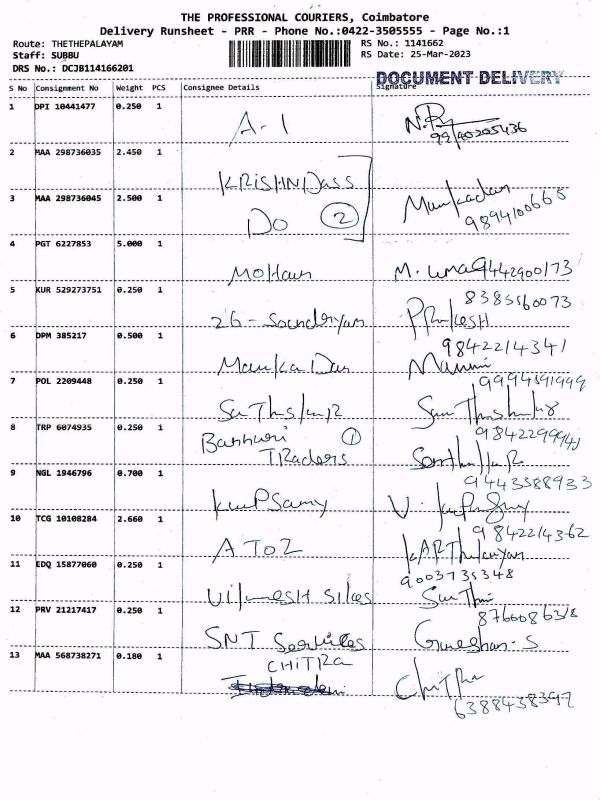 THE PROFESSIONAL COURIERS, Coimbatore
Delivery Runsheet - PRR - Phone No.:0422-3505555 - Page No.:1
Route: THETHEPALAYAM RS No.: 1141662
Staff: SUBBU RS Date: 25-Mar-2023
DRS No.: DCJB114166201
DOCUMENT DELIVERY
S No Consignment No Weight PCS Consignee Details Signature
1 DPI 10441477 0.250 1
A-1
2 MAA 298736035 2.450 1
KRiSHNDass
3 MAA 298736045 2.500 1
Do 2
9894100665
4 PGT 6227853 5.000 1
Mohan M. Uma 9442900173
5 KUR 529273751 0.250 1
8383560073
26 - Soundaryam PRakesH
6 DPM 385217 0.500 1
9842214341
7 POL 2209448 0.250 1
8 TRP 6074935 0.250 1
1
TRaders
9 NGL 1946796 0.700 1
9443588933
KuPSamy
10 TCG 10108284 2.660 1
9842214362
A To Z
11 EDQ 15877060 0.250 1
9003735348
12 PRV 21217417 0.250 1
SNT Services Ganeshan.S
13 MAA 568738271 0.180 1
CHiTRa
ChiTRa